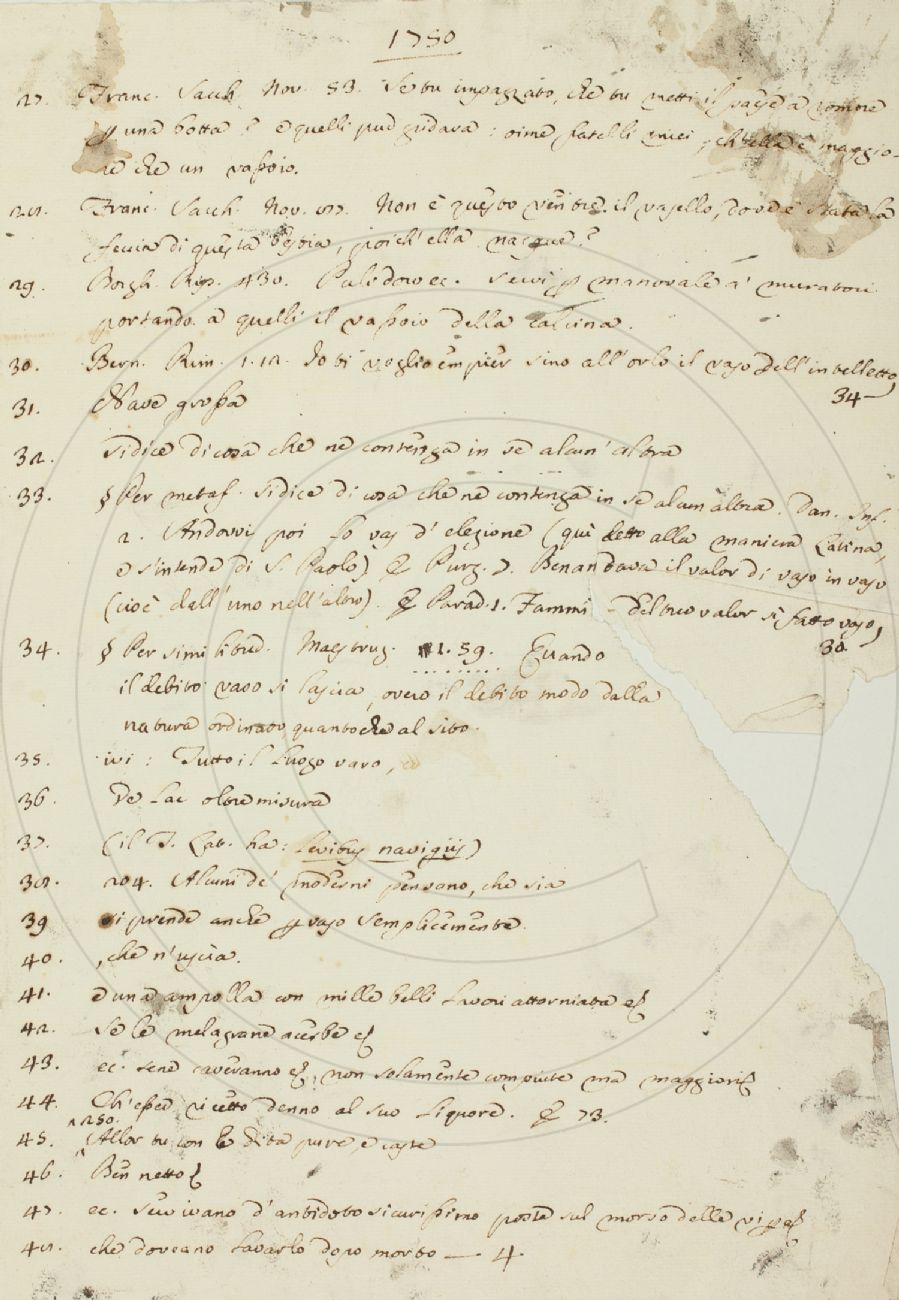 1750
27. Franc. Sacch. Nov. 83. Se tu impazzato, che tu metti il pesce a comune
p una botta? e quelli pur gridava: oimè fratelli miei, ch'ella è maggio-
re che un vassoio.
28. Franc. Sacch. Nov. Non è questo ventre il vasello, dove è stata la
feccia di questa bestia, poich'ella nacque?
29. Borgh. Rip. 430. Polidoro ec. servì p manovale a' muratori
portando a quelli il vassoio della calcina.
30. Bern. Rim. 1. 12. Io ti voglio empier sino all'orlo il vaso dell'inbelletto,
34
31. Nave grossa
32. Si dice di cosa che ne contenga in se alcun'altra
33. § Per metaf. si dice di cosa che ne contenga in se alcun altra. Dan. Inf.
2. Andovvi poi lo vas d'elezione (qui detto alla maniera Latina,
e s'intende di S. Paolo) & Purg. 7. Ben andava il valor di vaso in vaso
(cioè dall'uno nell'altro). & Parad. 1. Fammi del tuo valor sì fatto vaso,
30
34. § Per similitud. Magstruz. 1. 59. Quando
il debito vaso si lascia, overo il debito modo dalla
natura ordinato, quantoche al sito.
35. ivi: Tutto il luogo varo,
36. De Lac oltremisura
37. (il T. Lat. ha: levibus navigiis)
38. 204. Alcuni de' moderni pensano, che sia
39 si prende anche p vaso semplicemente.
40. , che n'uscia.
41. e una ampolla con mille belli lavori attorniata &
42. Se le melagrane acerbe &
43. ec. sene caveranno &, non solamente compiute ma maggiori
44. Ch'esser ricetto denno al suo liquore. & 73.
250.
45. Allor tu con le dita pure, e caste
46. Ben netto
47. ec. servivano d'antidoto sicurissimo poste sul morso delle vipe
48. che doveano lavarlo dopo morto — 4.